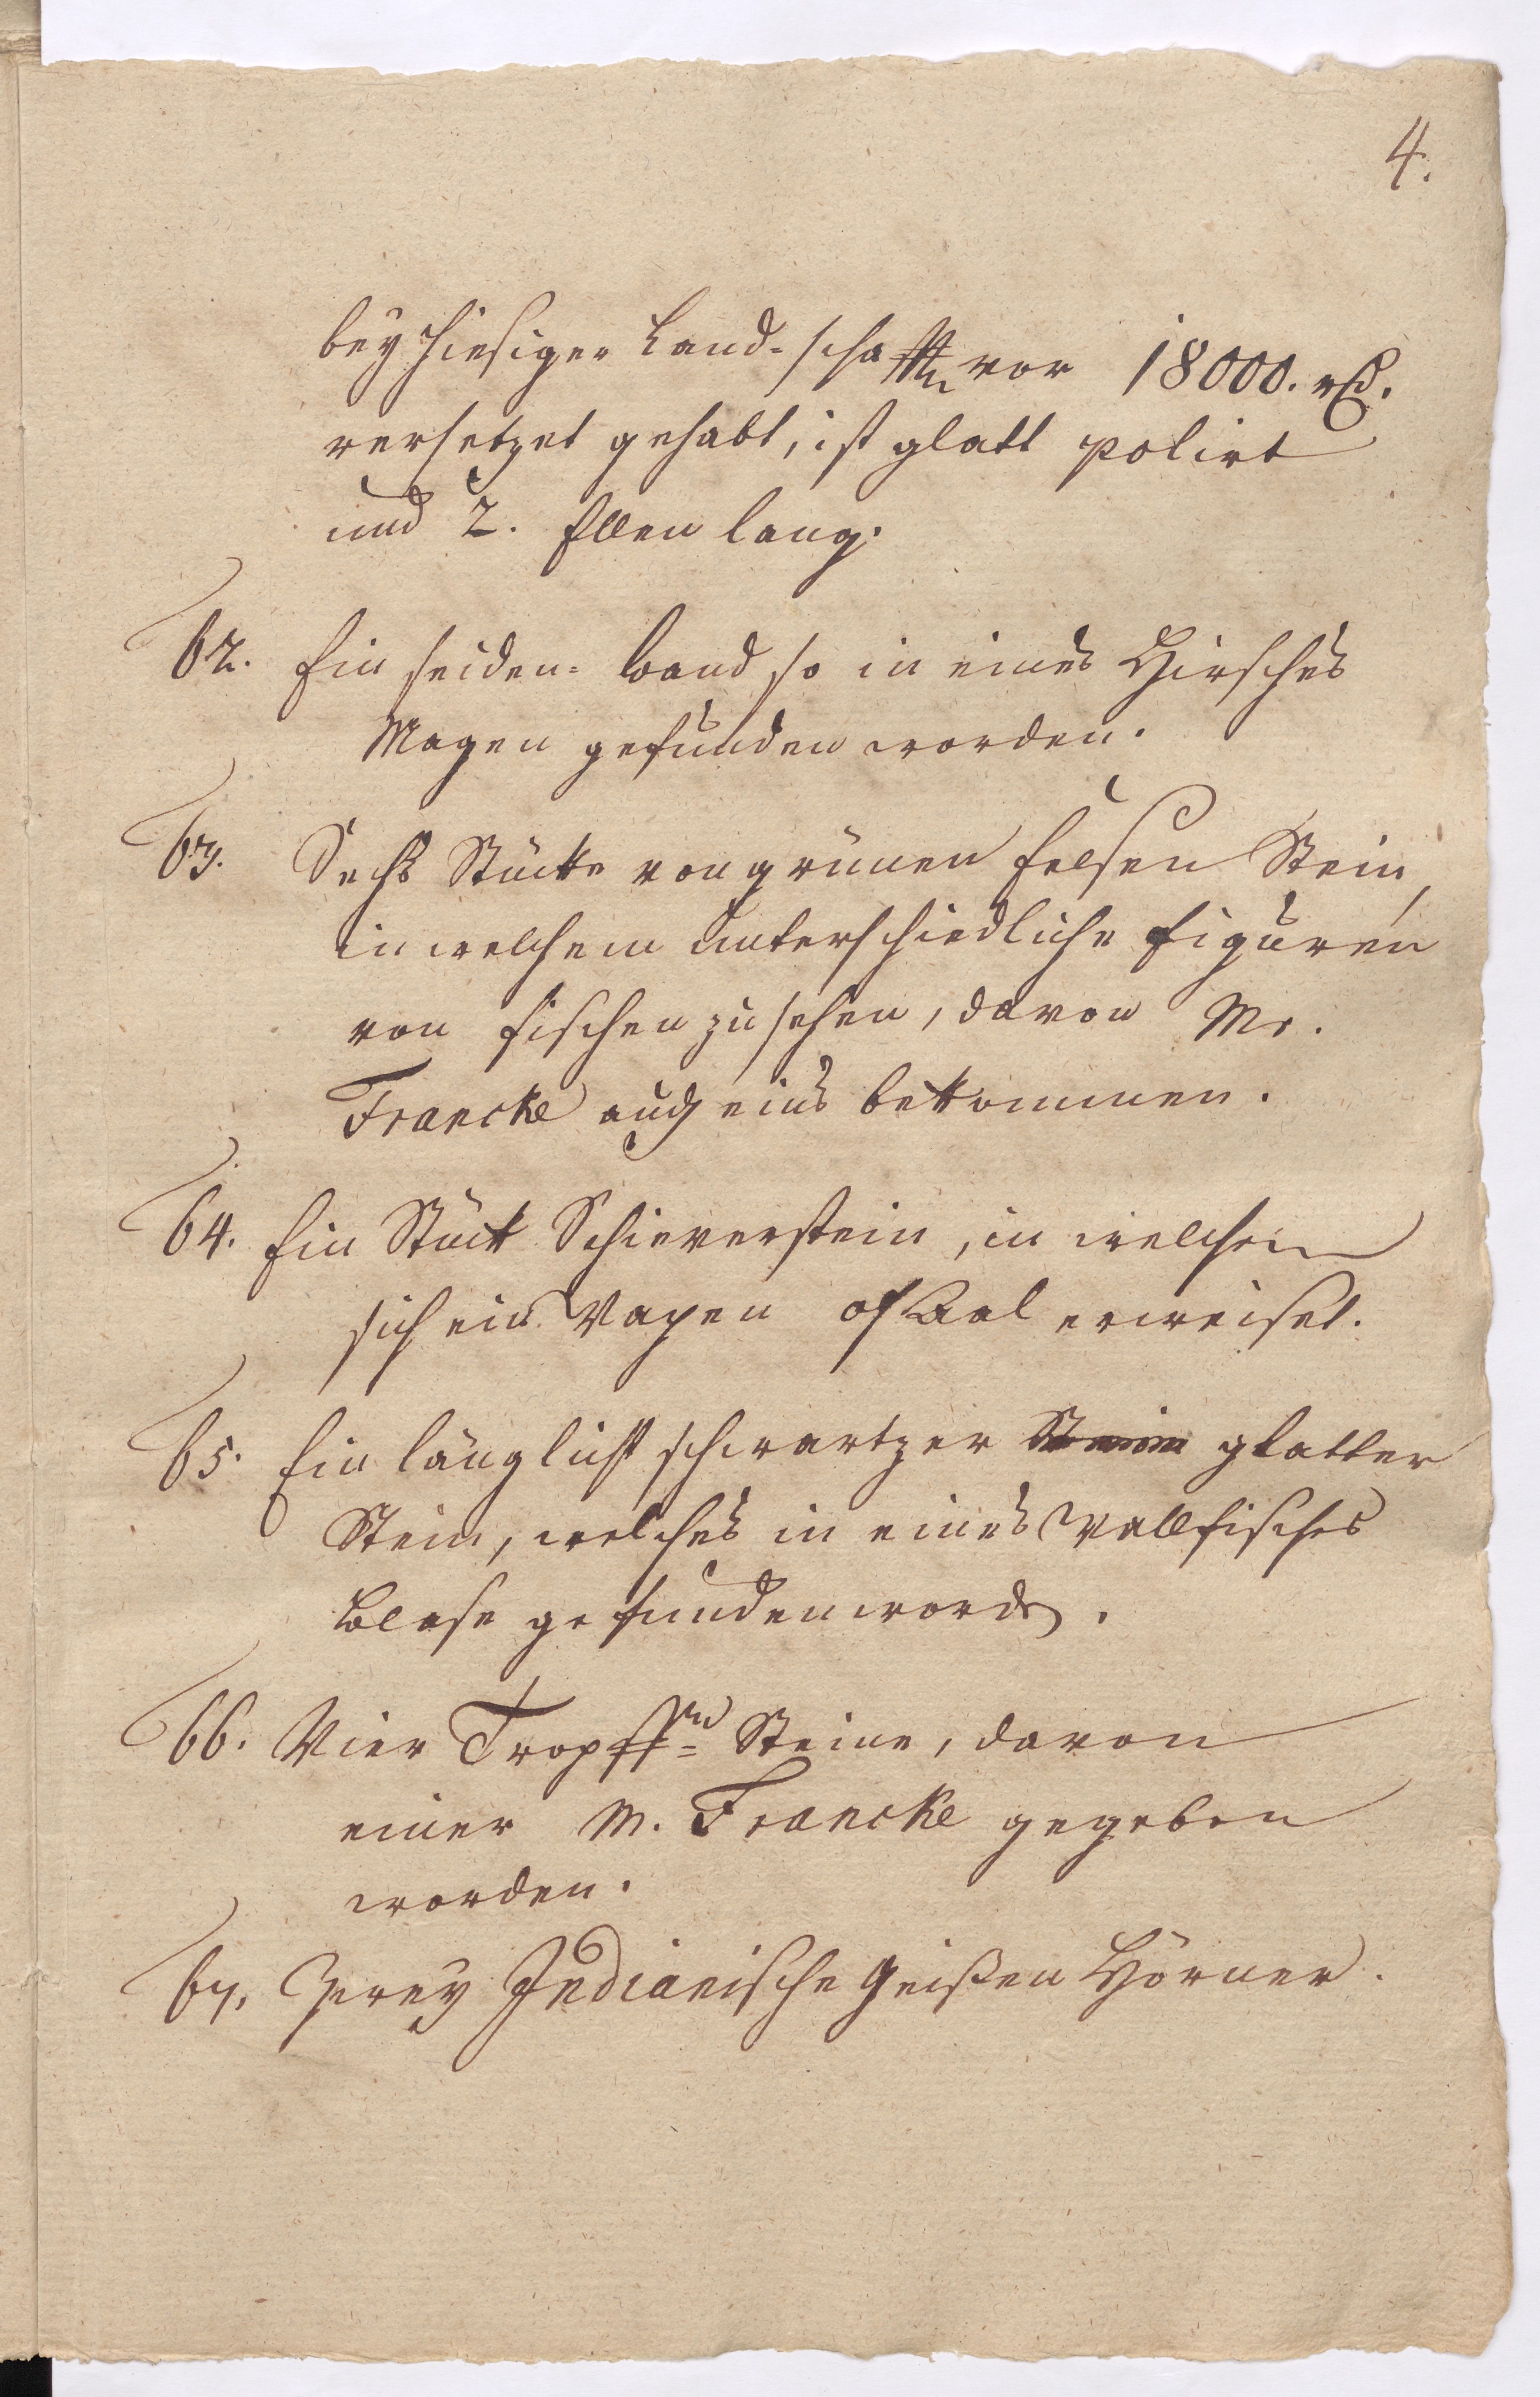 4.
bey hiesiger Land-schafften vor 18000. rthl.
versetzet gehabt, ist glatt polirt
und 2. Ellen lang.
62. Ein seiden-band so in eines Hirsches
Magen gefunden worden.
63. Sechs Stücke von grünen felsen Stein,
in welchem unterschiedliche figuren
von fischen zu sehen, davon Mr.
Francke auch eins bekommen.
64. Ein Stück Schieverstein, in welchem
sich ein Wapen erweiset.
65. Ein länglicht schwartzer Stein glatter
Stein, welches in eines Wallfisches
Blase gefunden worden.
66. Vier Tropff- Steine, davon
einer M. Francke gegeben
worden.
67. Zwey Indianische geißen Hörner.